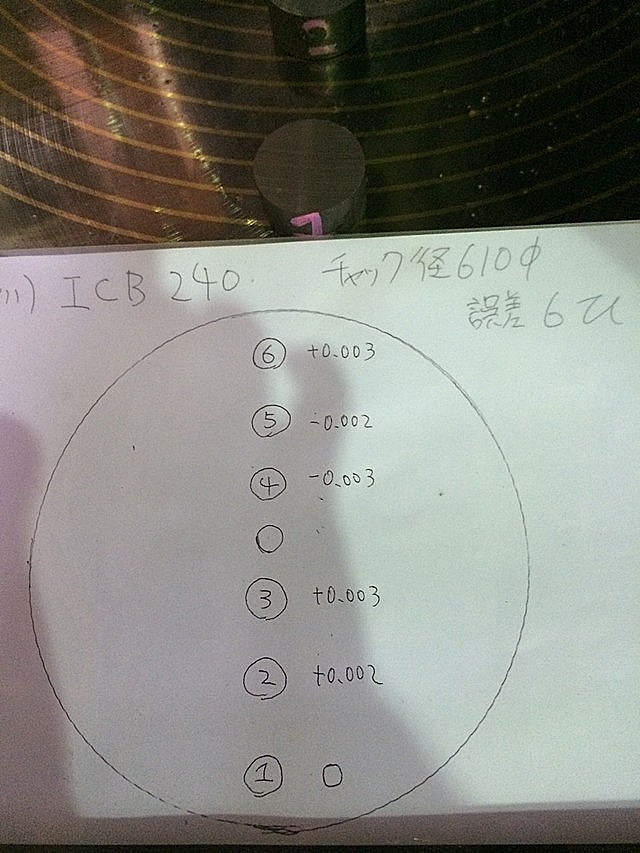 ICB 240. チャック径610φ
誤差 6
⑥ +0.003
⑤ -0.002
④ -0.003
③ +0.003
② +0.002
① 0